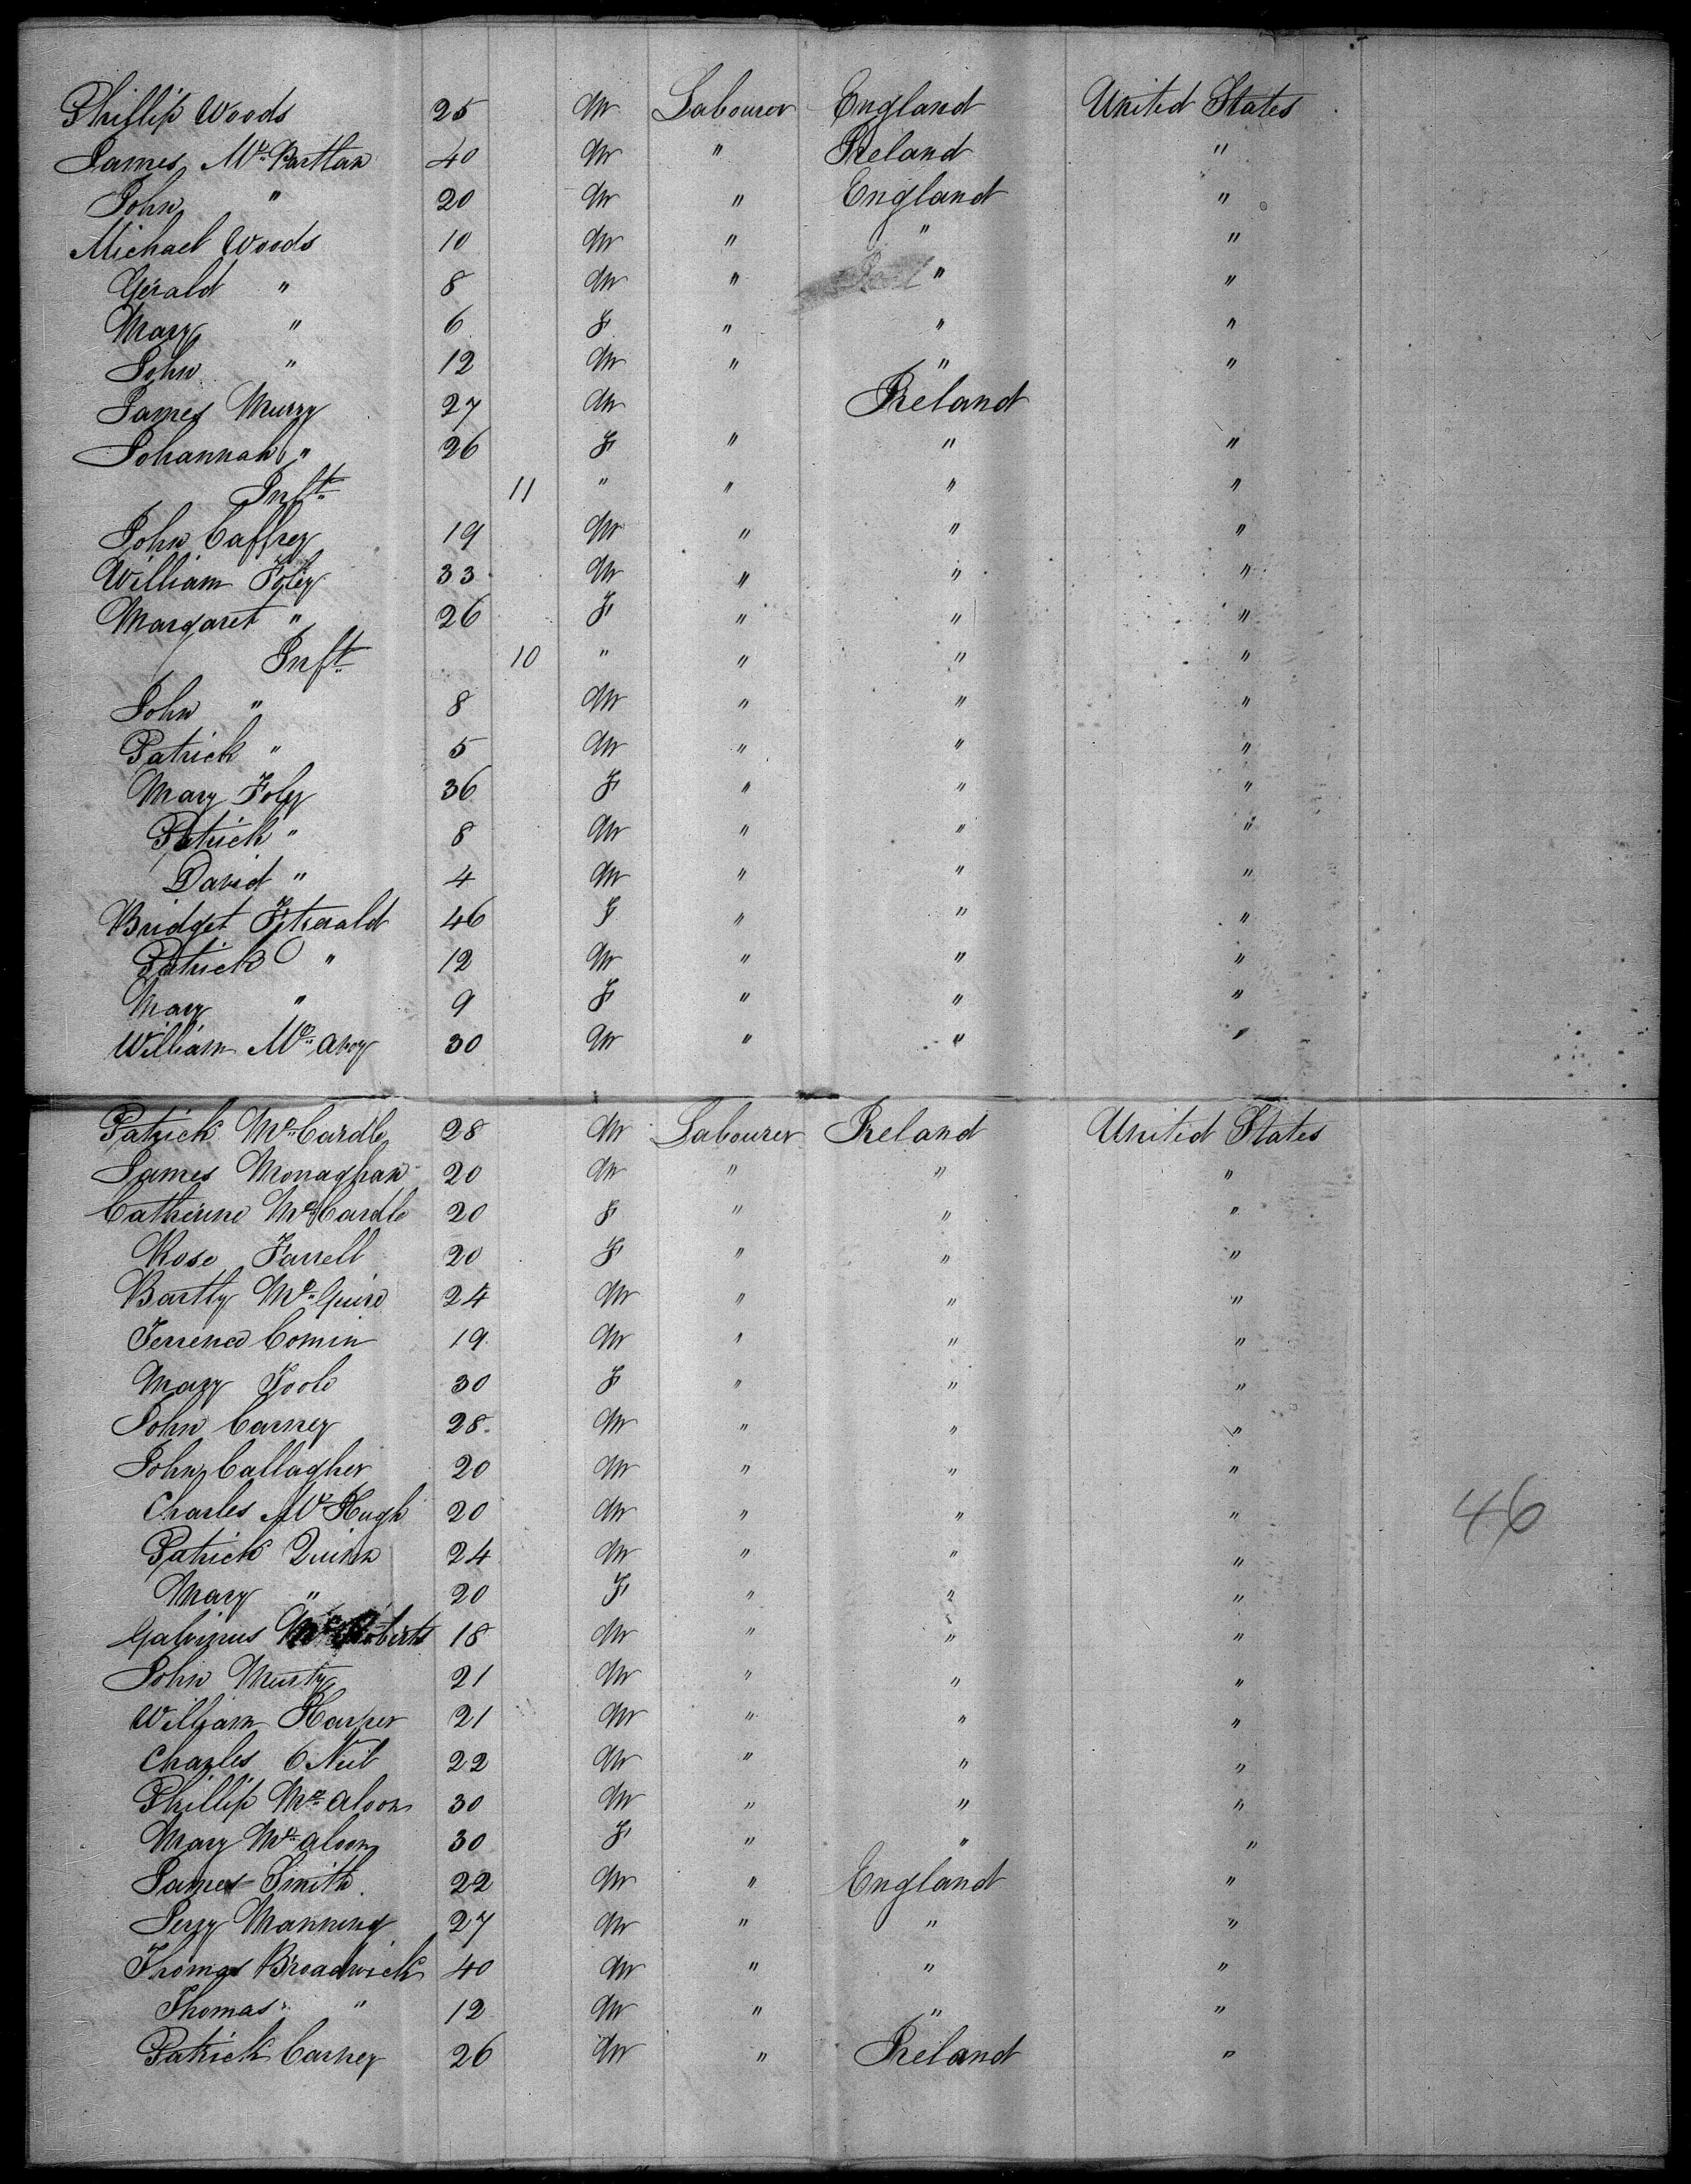 Phillip Woods 25 M Labourer England United States
James Mc Partlan 40 M " Ireland "
John " 20 M " England "
Michael Woods 10 M " " "
Gerald " 8 M " " "
Mary " 6 F " " "
John " 12 M " " "
James Murry 27 M Ireland
Johannah " 26 F " " "
Inft 11 " " " "
John Caffrey 19 M " " "
William Foley 33 M " " "
Margaret " 26 F " " "
Inft 10 " " " "
John " 8 M " " "
Patrick " 5 M " " "
Mary Foley 36 F " " "
Patrick " 8 M " " "
David " 4 M " " "
Bridget 46 F " " "
Patrick " 12 M " " "
Mary " 9 F " " "
William Mc Avoy 30 M " " "
Patrick Mc Cardle 28 M Labourer Ireland United States
James Monaghan 20 M " " "
Catherine Mc Cardle 20 F " " "
Rose Farrell 20 F " " "
Bartly Mc Guire 24 M " " "
Terrence Comin 19 M " " "
Mary Toole 30 F " " "
John Carney 28 M " " "
John Callagher 20 M " " "
Charles Mc Hugh 20 M " " "
Patrick Quinn 24 M " " "
Mary " 20 F " " "
Roberts 18 M " " "
John Murty 21 M " " "
William Harper 21 M " " "
Charles O Neil 22 M " " "
Phillip Mc Aloon 30 M " " "
Mary Mc Aloon 30 F " " "
James Smith 22 M " England "
Perry Manning 27 M " " "
Thomas Broadwick 40 M " " "
Thomas " 12 M " " "
Patrick Carney 26 M " Ireland "
46